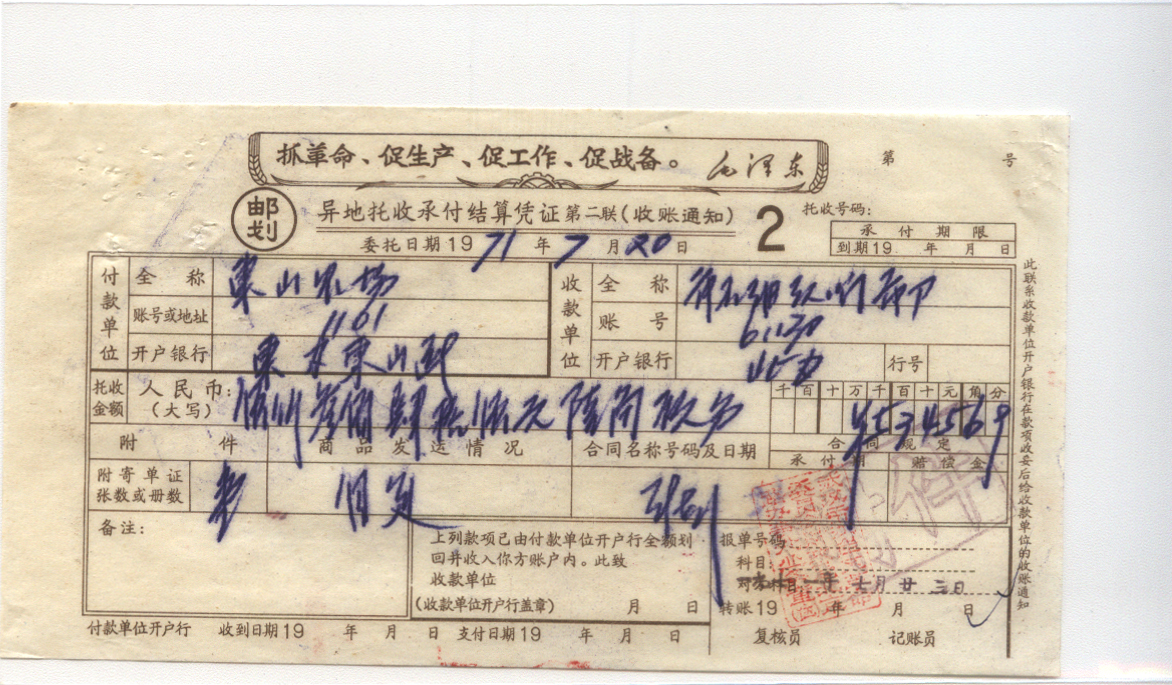 抓革命、促生产、促工作、促战备。 毛泽东
第 号
邮划
异地托收承付结算凭证 第二联(收账通知) 2
托收号码:
委托日期 19 71 年 7 月 20 日
承付期限
到期 19 年 月 日
付款单位
全称 东山农场
账号或地址 1101
开户银行
收款单位
全称
账号 61130
开户银行
行号
托收金额
人民币:(大写) 伍仟叁佰肆拾伍元陆角玖分
千百十万千百十元角分
¥534569
附件
商品发运情况
合同名称号码及日期
合同规定
承付期
赔偿金
附寄单证张数或册数
自运
备注:
上列款项已由付款单位开户行全额划
回并收入你方账户内。此致
收款单位
(收款单位开户行盖章) 月 日
报单号码:
科目
对方科目
一年七月廿三日
转账 19 年 月 日
复核员 记账员
付款单位开户行 收到日期 19 年 月 日 支付日期 19 年 月 日
此联系收款单位开户银行在款项收妥后给收款单位的收账通知